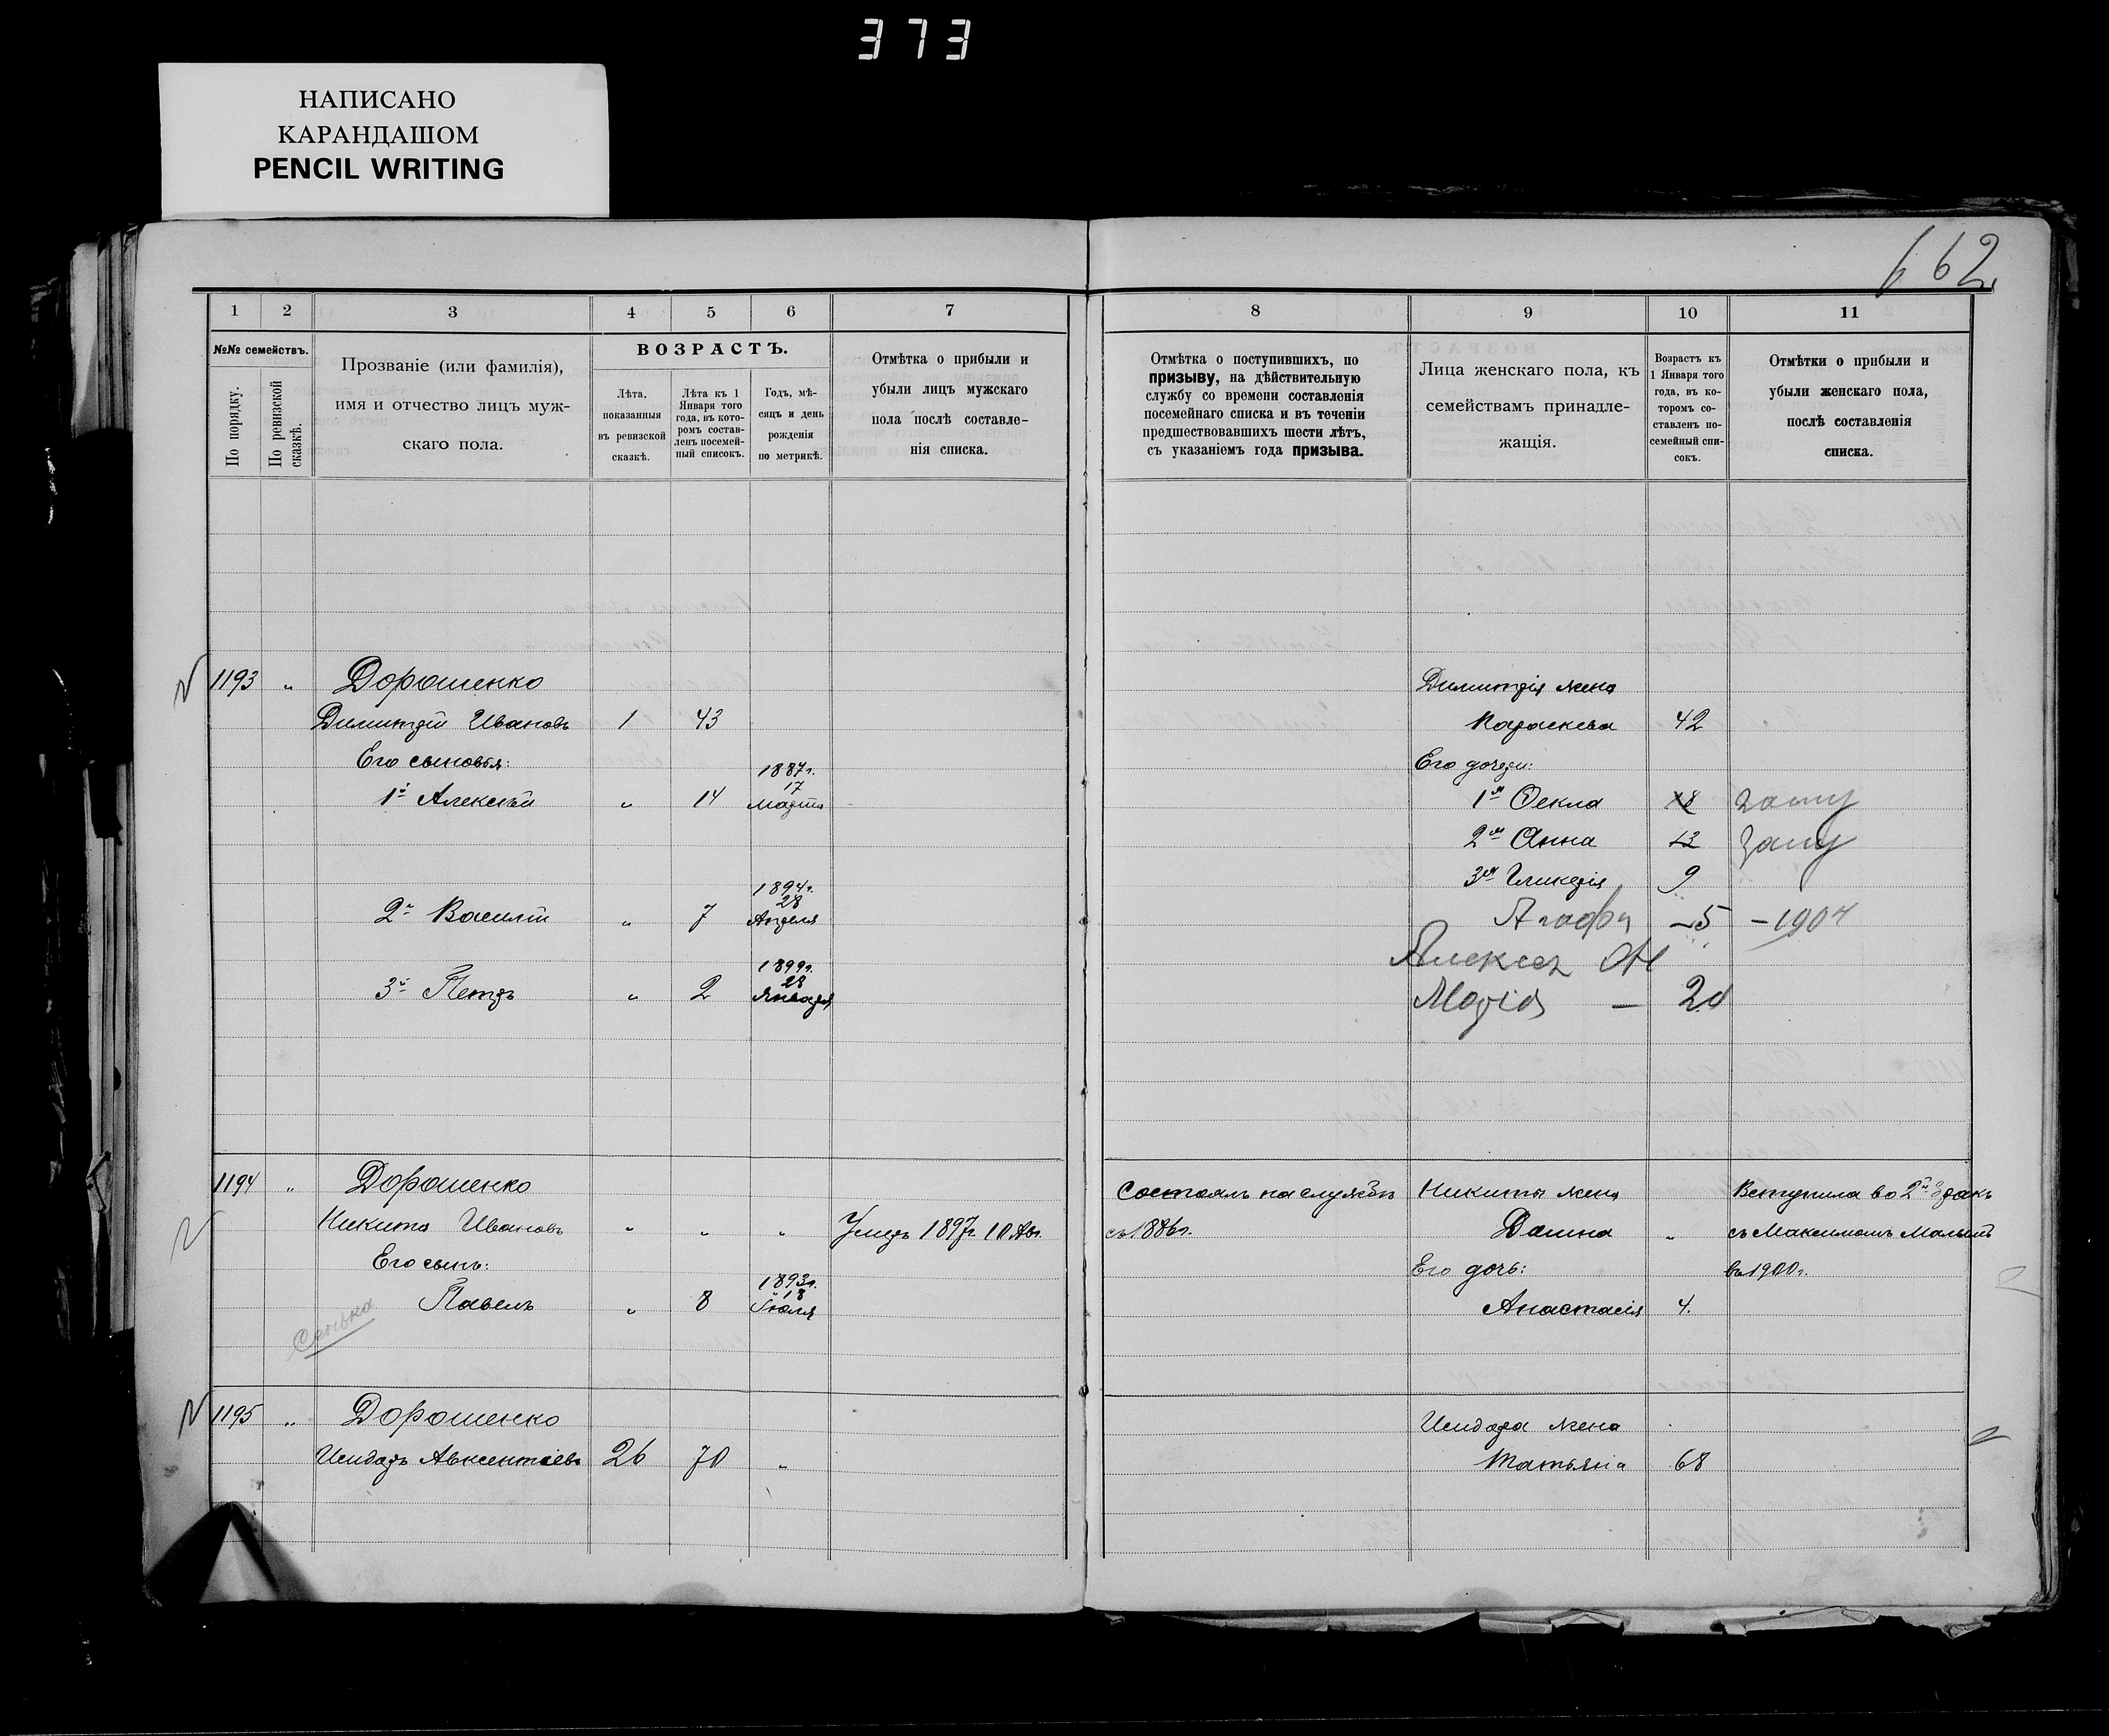 373
НАПИСАНО
КАРАНДАШОМ
PENCIL WRITING
662
1 2 3 4 5 6 7
№№ семействъ.
По порядку.
По ревизской сказкѣ.
Прозваніе (или фамилія),
имя и отчество лицъ муж-
скаго пола.
ВОЗРАСТЪ.
Лѣта,
показанныя
въ ревизской
сказкѣ.
Лѣта къ 1
Января того
года, въ кото-
ромъ состав-
ленъ посемей-
ный списокъ.
Годъ, мѣ-
сяцъ и день
рожденія
по метрикѣ.
Отмѣтка о прибыли и
убыли лицъ мужскаго
пола послѣ составле-
нія списка.
8 9 10 11
Отмѣтка о поступившихъ, по
призыву, на дѣйствительную
службу со времени составленія
посемейнаго списка и въ теченіи
предшествовавшихъ шести лѣтъ,
съ указаніемъ года призыва.
Лица женскаго пола, къ
семействамъ принадле-
жащія.
Возрастъ къ
1 Января того
года, въ ко-
торомъ со-
ставленъ по-
семейный спи-
сокъ.
Отмѣтки о прибыли и
убыли женскаго пола,
послѣ составленія
списка.
1193 " Дорошенко
Димитрій Ивановъ 1 43
Его сыновья:
1й Алексѣй " 14 1887г. 17 Марта
2й Василій " 7 1894г. 28 Апреля
3й Петръ " 2 1899г. 28 Января
Димитрія жена
Параскева 42
Его дочери:
1я Ѳекла 18 заму
2я Анна 13 заму
3я Гликерія 9
Агафія -5 -1904
Алексея
Марія - 20
1194 " Дорошенко
Никита Ивановъ " " " Умеръ 1897г. 10 Авг.
Его сынъ:
Павелъ " 8 1893г. 18 Іюля
Сенька
Состоялъ на службѣ
съ 1886г.
Никиты жена Вступила во 2й бракъ
Домна " съ Максимомъ
Его дочь: въ 1900г.
Анастасія 4.
1195 " Дорошенко
Исидоръ Авксентіевъ 26 70 "
Исидора жена
Татьяна 68